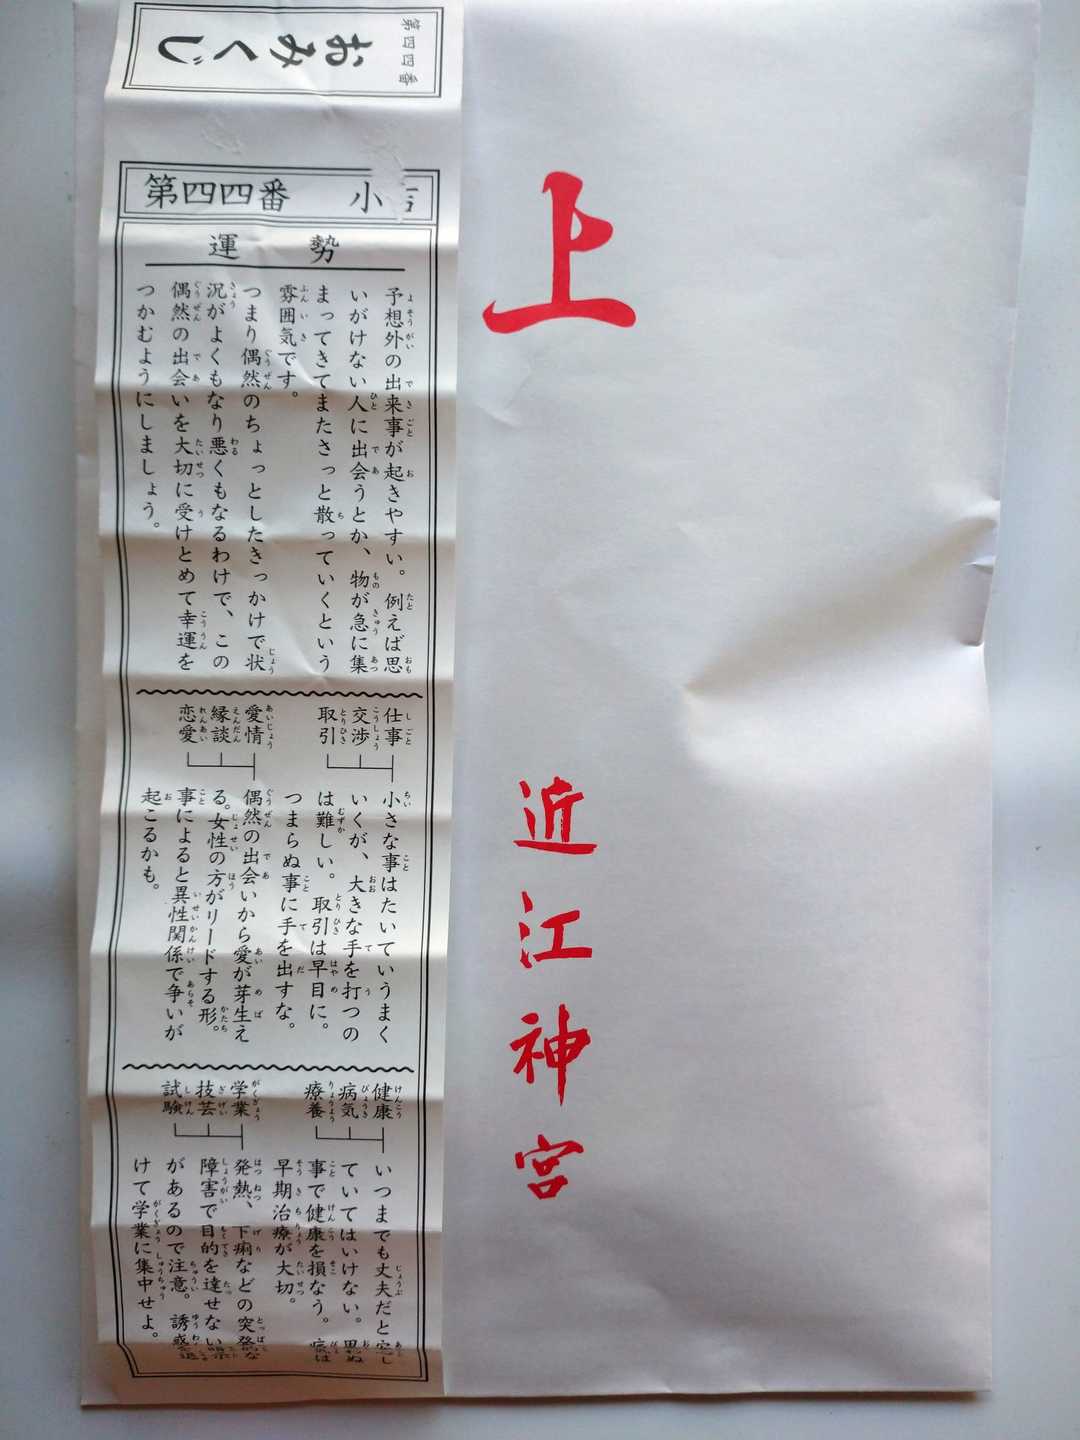 第四四番
おみくじ
第四四番　小吉
運勢
予想外の出来事が起きやすい。例えば思
いがけない人に出会うとか、物が急に集
まってきてまたさっと散っていくという
雰囲気です。
つまり偶然のちょっとしたきっかけで状
況がよくもなり悪くもなるわけで、この
偶然の出会いを大切に受けとめて幸運を
つかむようにしましょう。
仕事
交渉
取引
小さな事はたいていうまく
いくが、大きな手を打つの
は難しい。取引は早目に。
つまらぬ事に手を出すな。
愛情
縁談
恋愛
偶然の出会いから愛が芽生え
る。女性の方がリードする形。
事によると異性関係で争いが
起こるかも。
健康
病気
療養
いつまでも丈夫だと
ていてはいけない。思わぬ
事で健康を損なう。病は
早期治療が大切。
学業
技芸
試験
発熱、下痢などの突発的な
障害で目的を達せない
があるので注意。誘惑を退
けて学業に集中せよ。
上
近江神宮